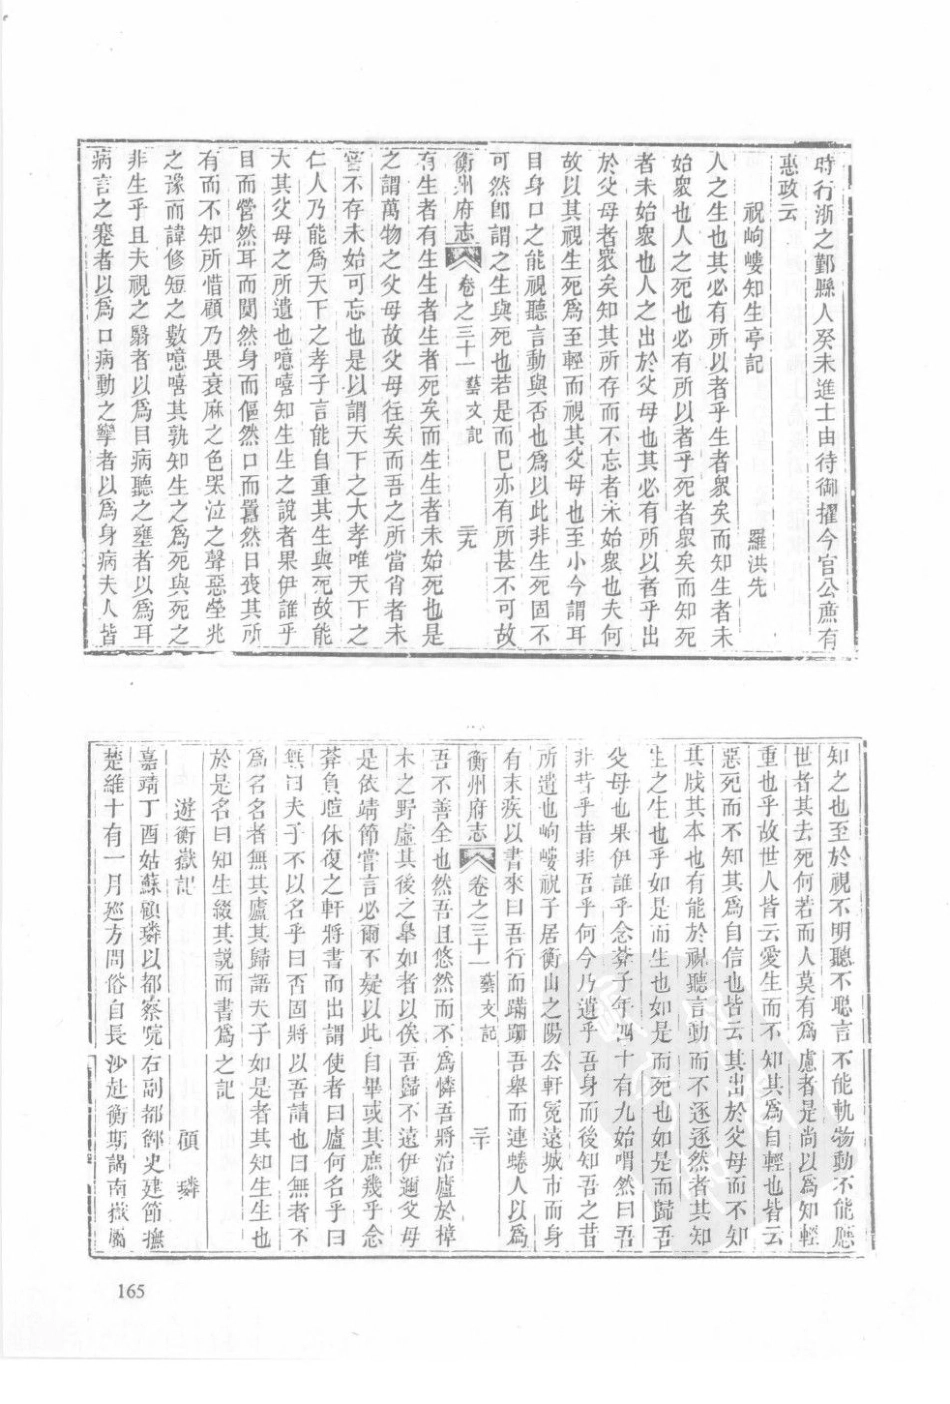 時行浙之鄞縣人癸未進士由待御擢今官公庶有
惠政云
祝岣嶁知生亭記　羅洪先
人之生也其必有所以者乎生者衆矣而知生者未
始衆也人之死也必有所以者乎死者衆矣而知死
者未始衆也人之出於父母也其必有所以者乎出
於父母者衆矣知其所存而不忘者未始衆也夫何
故以其視生死爲至輕而視其父母也至小今謂耳
目身口之能視聽言動與否也爲以此非生死固不
可然卽謂之生與死也若是而已亦有所甚不可故
衡州府志　卷之三十一　藝文記　三九
有生者有生生者生者死矣而生生者未始死也是
之謂萬物之父母故父母往矣而吾之所當肯者未
嘗不存未始可忘也是以謂天下之大孝唯天下之
仁人乃能爲天下之孝子言能自重其生與死故能
大其父母之所遺也噫嘻知生生之說者果伊誰乎
目而瞢然耳而闃然身而傴然口而嚚然日喪其所
有而不知所惜顧乃畏衰麻之色哭泣之聲惡塋兆
之豫而諱修短之數噫嘻其孰知生之爲死與死之
非生乎且夫視之翳者以爲目病聽之壅者以爲耳
病言之蹇者以爲口病動之攣者以爲身病夫人皆
知之也至於視不明聽不聰言不能軌物動不能應
世者其去死何若而人莫有爲慮者是尚以爲知輕
重也乎故世人皆云愛生而不知其爲自輕也皆云
惡死而不知其爲自信也皆云其出於父母而不知
其戕其本也有能於視聽言動而不逐逐然者其知
生之生也乎如是而生也如是而死也如是而歸吾
父母也果伊誰乎念菴子年四十有九始喟然曰吾
非昔乎昔非吾乎何今乃遺乎吾身而後知吾之昔
所遺也岣嶁祝子居衡山之陽厺軒冕遠城市而身
有末疾以書來曰吾行而蹣跚吾舉而連蜷人以爲
衡州府志　卷之三十一　藝文記　三十
吾不善全也然吾且悠然而不爲憐吾將治廬於樟
木之野虛其後之皋如者以俟吾歸不遠伊邇父母
是依靖節嘗言必爾不疑以此自畢或其庶幾乎念
菴負暄休復之軒將書而出謂使者曰廬何名乎曰
無曰夫子不以名乎曰否固將以吾請也曰無者不
爲名名者無其廬其歸語夫子如是者其知生生也
於是名曰知生綴其說而書爲之記
遊衡嶽記　顧璘
嘉靖丁酉姑蘇顧璘以都察院右副都御史建節撫
楚維十有一月廵方問俗自長沙赴衡斯謁南嶽屬
165